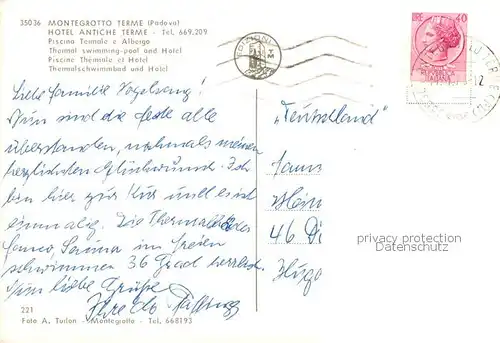 35036 MONTEGROTTO TERME (Padova)
HOTEL ANTICHE TERME - Tel. 669.209
Piscina Termale e Albergo
Thermal swimming-pool and Hotel
Piscine Thermale et Hotel
Thermalschwimmbad und Hotel
LIRE 40
Liebe Familie Vogelsang!
Nun sind die Feste alle
überstanden, nochmals meinen
herzlichen Glückwunsch. Ich
bin hier zur Kur und es ist
einmalig. Die
Sauna im Freien
schwimmen 36 Grad herrlich.
Nun liebe Grüße
Ihre
"Deutschland"
46 D
privacy protection
Datenschutz
221
Foto A. Turlon - Montegrotto - Tel. 668193